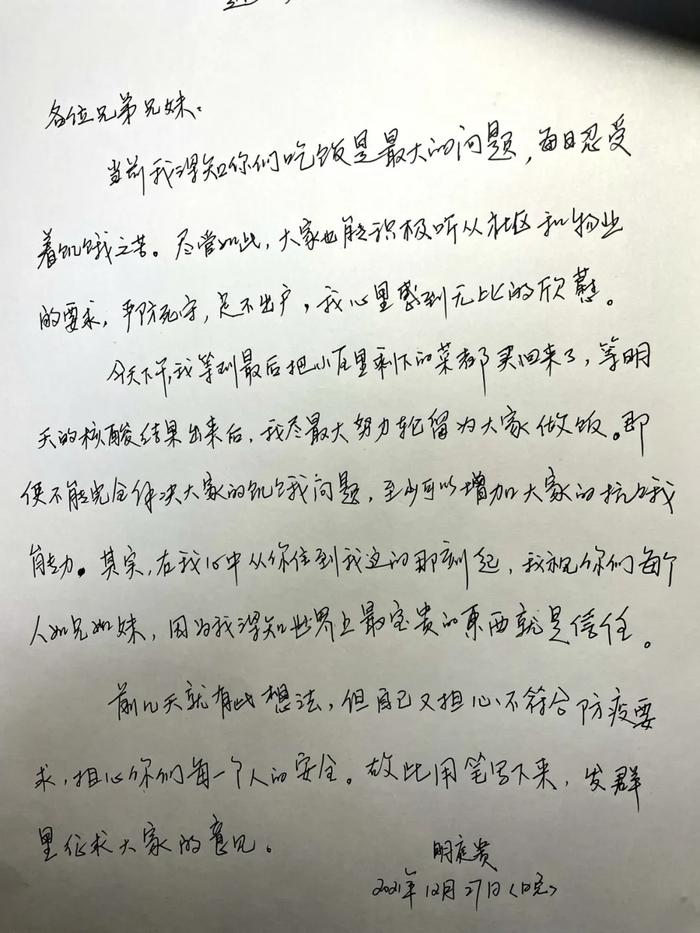 各位兄弟兄妹：
当前我得知你们吃饭是最大的问题，每日忍受
着饥饿之苦。尽管如此，大家也能积极听从社区和物业
的要求，严防死守，足不出户，我心里感到无比的欣慰。
今天下午，我等到最后把小店里剩下的菜都买回来了，等明
天的核酸结果出来后，我尽最大努力轮留为大家做饭。即
便不能完全解决大家的饥饿问题，至少可以增加大家的抗饿
能力。其实，在我心中从你住到我这的那刻起，我视你们每个
人如兄如妹，因为我得知世界上最宝贵的東西就是信任。
前几天就有此想法，但自己又担心不符合防疫要
求，担心你们每一个人的安全。故此用笔写下来，发群
里征求大家的意见。
明庭贵
2021年12月27日